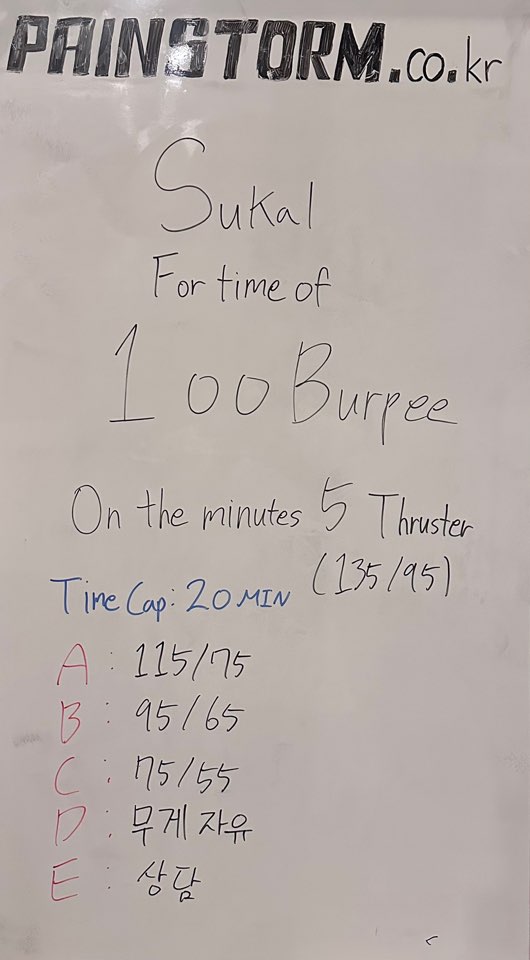 PAINSTORM.co.kr
Sukal
For time of
100 Burpee
On the minutes 5 Thruster
(135/95)
Time Cap: 20 MIN
A : 115/75
B : 95/65
C : 75/55
D : 무게 자유
E : 상담